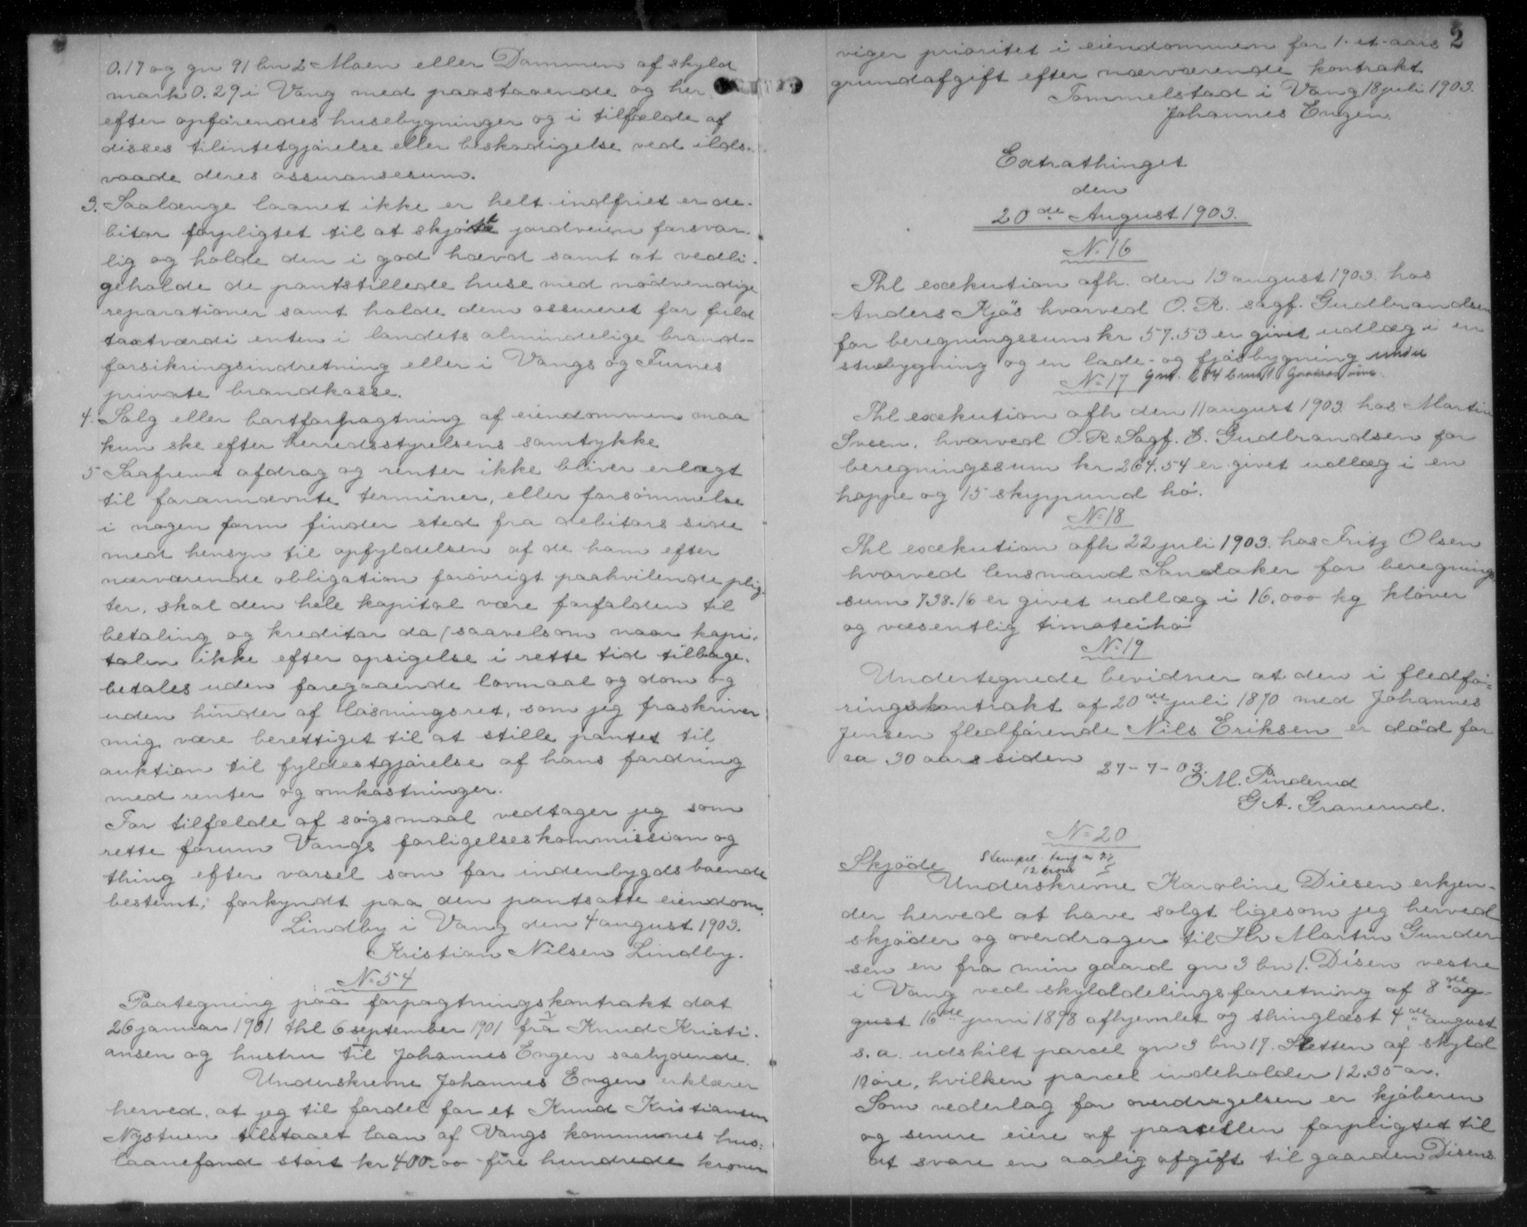 0.17 og gn 91 bn 2 Moen eller Dammen af skyld
mark 0.29 i Vang med paastaaende og her
efter opförendes husebygninger og i tilfælde af
disses tilintetgjörelse eller beskadigelse ved ilds-
vaade deres assuransesum.
3. Saalænge laanet ikke er helt indfriet er de-
bitor forpligtet til at skjötte jordveien forsvar-
lig og holde den i god hævd samt at vedli-
geholde de pantstillede huse med nödvendige
reparationer samt holde dem assureret for fuld
taxtværdi enten i landets almindelige brand-
forsikringsindretning eller i Vangs og Furnes
private brandkasse.
4. Salg eller bortforpagtning af eiendommen maa
kun ske efter herredsstyrelsens samtykke
5 Saafremt afdrag og renter ikke bliver erlagt
til forannævnte terminer, eller forsömmelse
i nogen form finder sted fra debitors side
med hensyn til opfyldelsen af de ham efter
nærværende obligation forövrigt paahvilende plig-
ter, skal den hele kapital være forfalden til
betaling og kreditor da (saavelsom naar kapi-
talen ikke efter opsigelse i rette tid tilbage-
betales uden foregaaende lovmaal og dom og
uden hinder af lösningsret, som jeg fraskriver
mig være berettiget til at stille pantet til
auktion til fyldestgjörelse af hans fordring
med renter og omkostninger.
For tilfælde af sögsmaal vedtager jeg som
rette forum Vangs forligelseskommission og
thing efter varsel som for indenbygds boende
bestemt, forkyndt paa den pantsatte eiendom.
Lindby i Vang den 4 august 1903.
Kristian Nilsen Lindby.
No 54
Paategning paa forpagtningskontrakt dat
26 januar 1901 thl 6 september 1901 fra Knud Kristi-
ansen og hustru til Johannes Engen saalydende.
Underskrevne Johannes Engen erklærer
herved, at jeg til fordel for et Knud Kristiansen
Nystuen tilstaaet laan af Vangs kommunes hus-
laanefond stort kr 400.00 fire hundrede kroner
2
viger prioritet i eiendommen for 1-et-aars
grundafgift efter nærværende kontrakt
Tommelstad i Vang 18 juli 1903.
Johannes Engen
Extrathinget
den
20de August 1903.
No 16
Thl exekution afh. den 13 august 1903 hos
Anders Kjös hvorved O. R. sagf. Gudbrandsen
for beregningssum kr 57.53 er givet udlæg i en
stuebygning og en lade- og fjösbygning under
No 17
Thl exekution afh den 11 august 1903 hos Martin
Sveen, hvorved O. R. Sagf. E. Gudbrandsen for
beregningssum kr 264.54 er givet udlæg i en
hoppe og 15 skyppund hö.
No 18
Thl exekution afh 22 juli 1903 hos Fritz Olsen
hvorved lensmand Sandaker for beregnings
sum 738.16 er givet udlæg i 16.000 kg klöver
og væsentlig timoteihö
No 19
Undertegnede bevidner at den i fledfö-
ringskontrakt af 20de juli 1870 med Johannes
Jensen fledförende Nils Eriksen er död for
ca 30 aar siden
27-7-03.
O. M. Pinderud
G A. Granerud.
No 20
Skjöde
Stempel
12 kroner
Underskrevne Karoline Diesen erkjen-
der herved at have solgt ligesom jeg herved
skjöder og overdrager til Hr Martin Gunder
sen en fra min gaard gn 3 bn 1. Disen vestre
i Vang ved skylddelingsforretning af 8de au-
gust 16de juni 1898 afhjemlet og thinglæst 4de august
s. a. udskilt parcel gn 3 bn 17. Sletten af skyld
10 öre, hvilken parcel indeholder 12.35 ar.
Som vederlag for overdragelsen er kjöberen
og senere eiere af parcellen forpligtet til
at svare en aarlig afgift til gaarden Disens